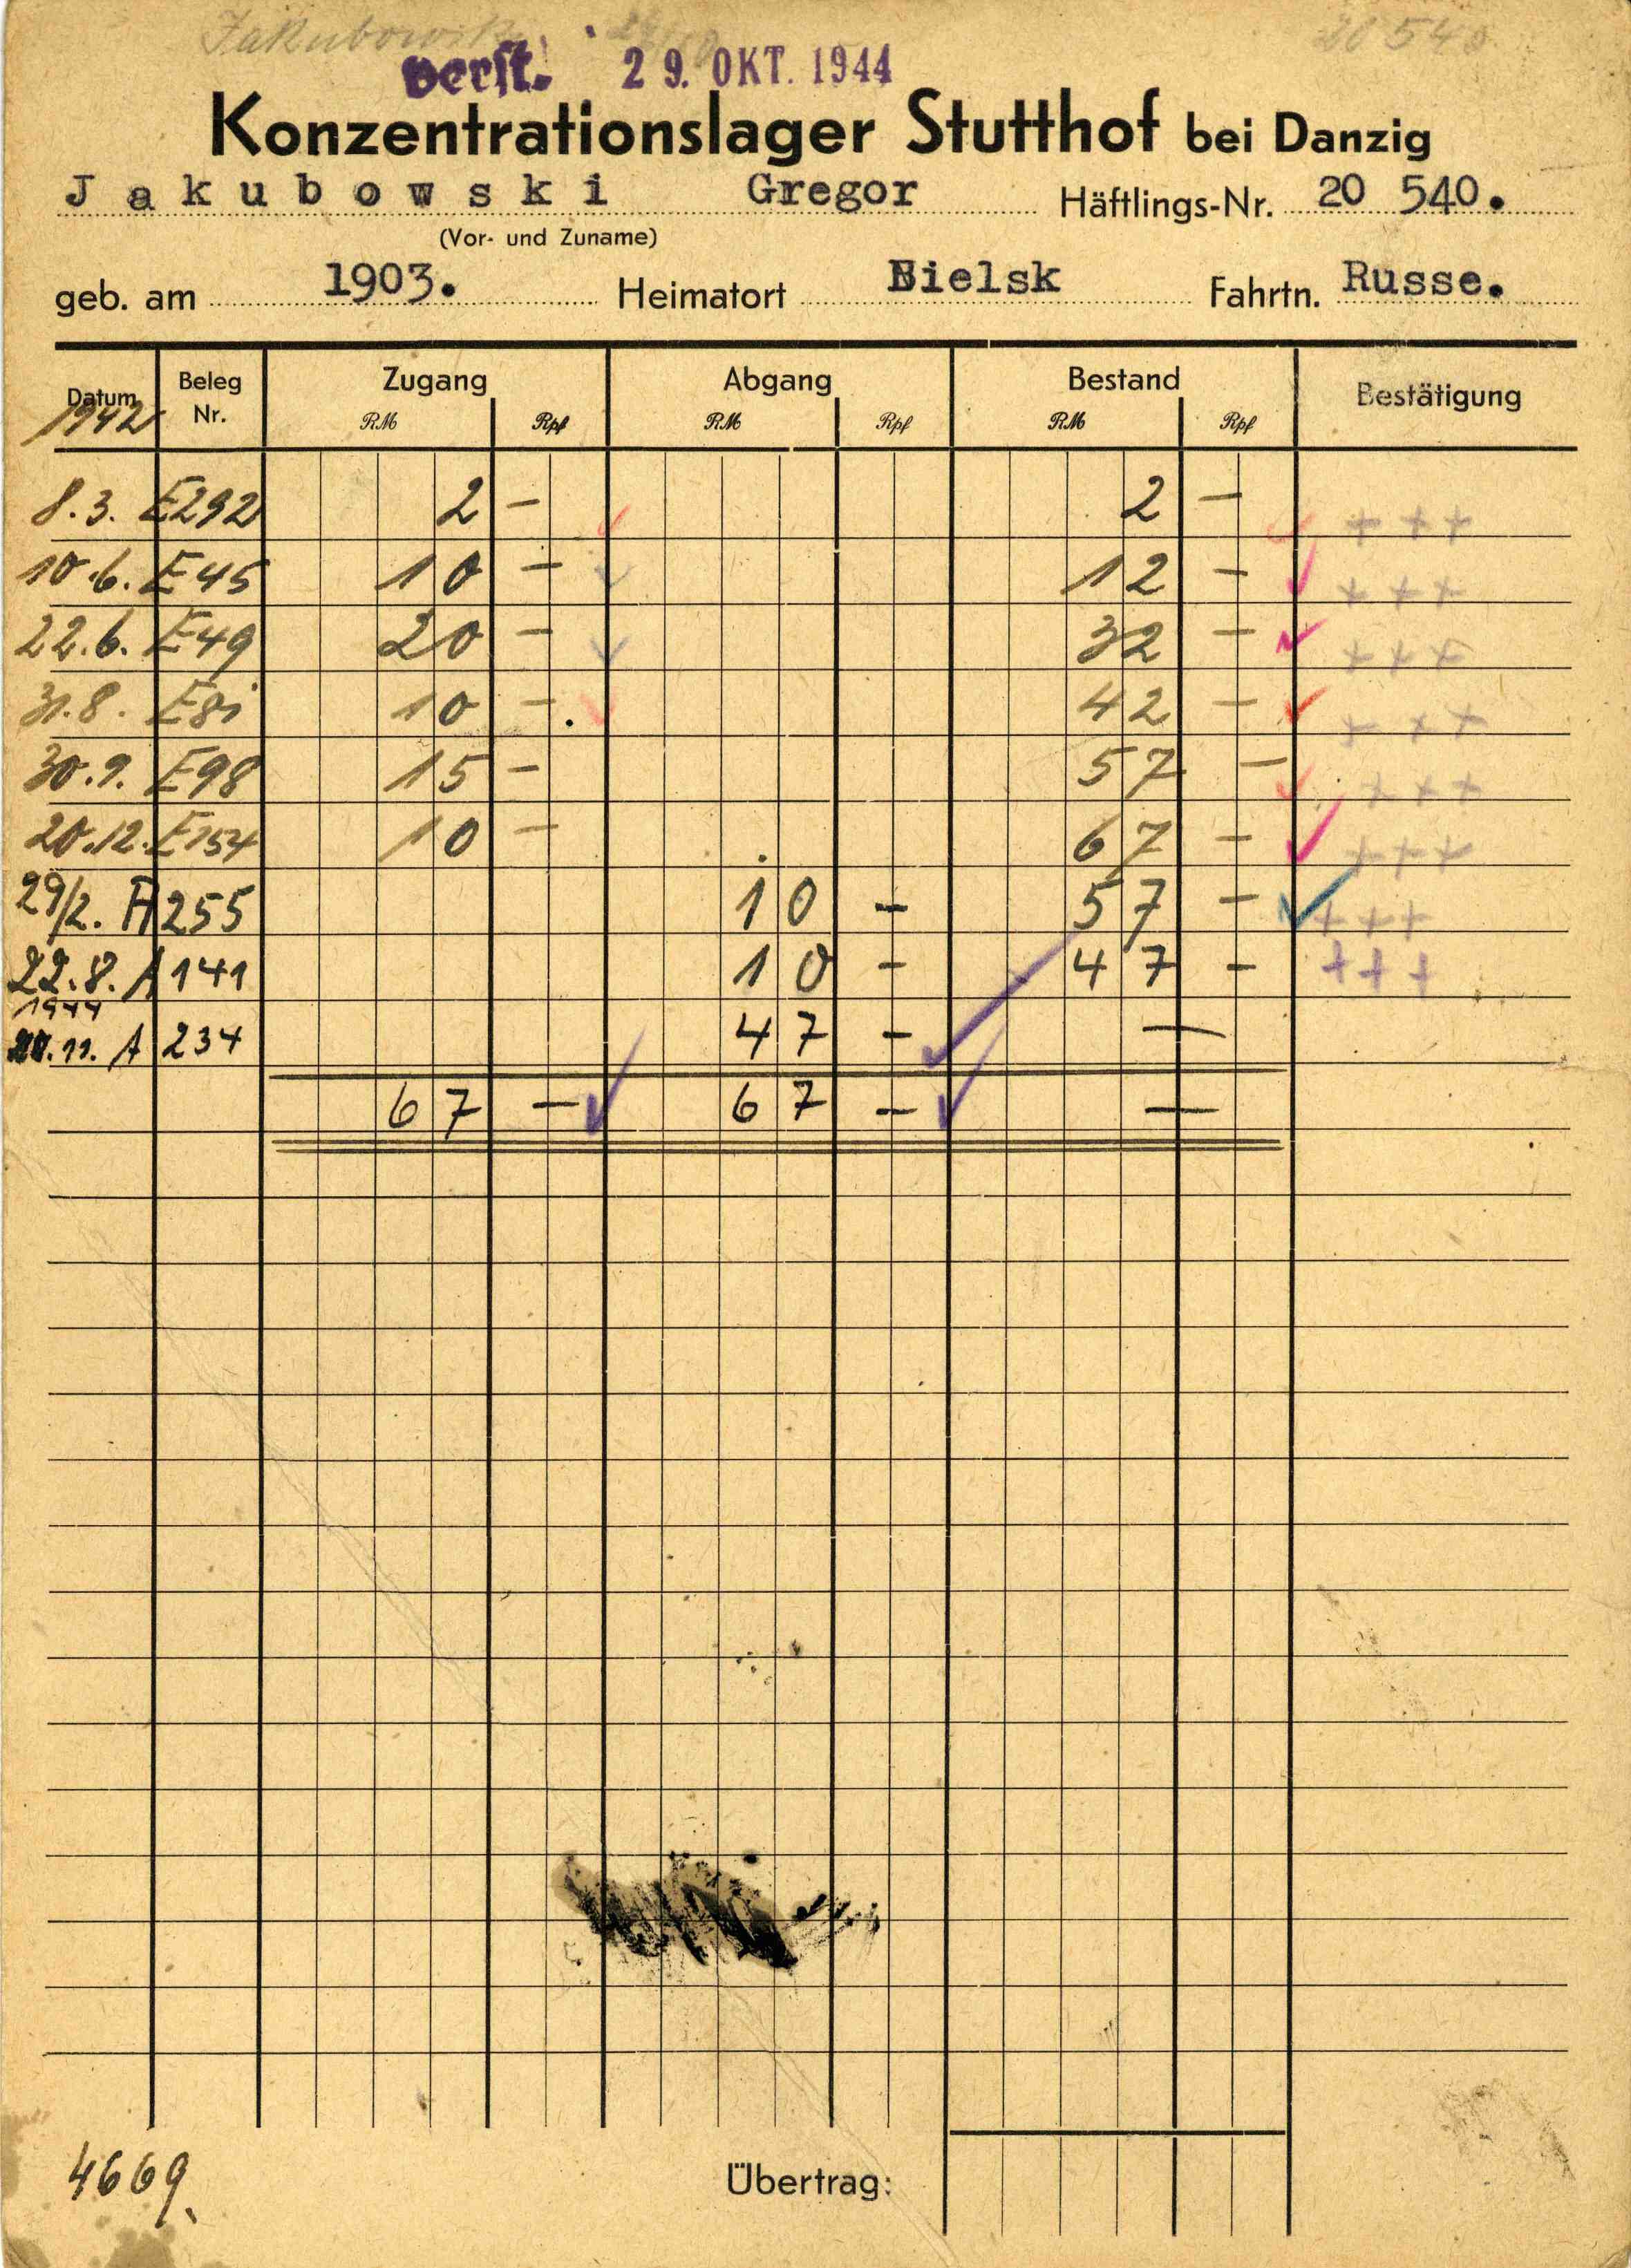 Jakubowski 20 540
verst. 29. OKT. 1944
Konzentrationslager Stutthof bei Danzig
Jakubowski Gregor Häftlings-Nr. 20 540.
(Vor- und Zuname)
geb. am 1903. Heimatort Bielsk Fahrtn. Russe.
Datum Beleg Nr. Zugang Abgang Bestand Bestätigung
1942 RM Rpf RM Rpf RM Rpf
8.3. E292 2 – 2 – +++
10.6. E45 10 – 12 – +++
22.6. E49 20 – 32 – +++
31.8. 10 – 42 – +++
30.9. E98 15 – 57 – +++
20.12. E154 10 – 67 – +++
29/2. A 255 10 – 57 – +++
22.8. A 141 10 – 47 – +++
1944
11. A 234 47 – —
67 – 67 – —
Übertrag:
4669.